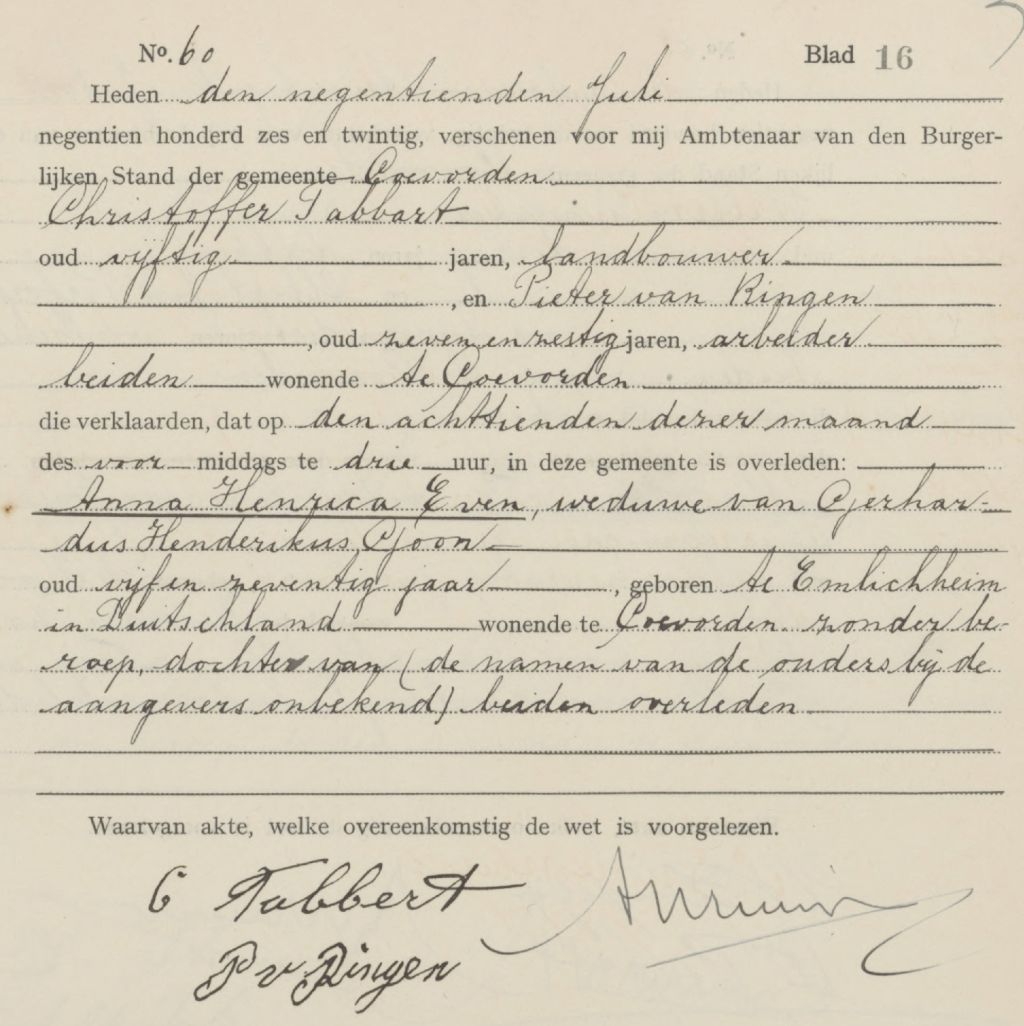 No. 60 Blad 16
Heden den negentienden Juli
negentien honderd zes en twintig, verschenen voor mij Ambtenaar van den Burger-
lijken Stand der gemeente Coevorden
Christoffer Tabbart
oud vijftig jaren, landbouwer
, en Pieter van Ringen
, oud zeven en zestig jaren, arbeider
beiden wonende te Coevorden
die verklaarden, dat op den achttienden dezer maand
des voor middags te drie uur, in deze gemeente is overleden:
Anna Henrica Even, weduwe van Gerhar-
dus Henderikus Goon
oud vijf en zeventig jaar, geboren te Emlichheim
in Duitschland wonende te Coevorden zonder be-
roep, dochter van (de namen van de ouders bij de
aangevers onbekend) beiden overleden
Waarvan akte, welke overeenkomstig de wet is voorgelezen.
C Tabbert
P v Ringen